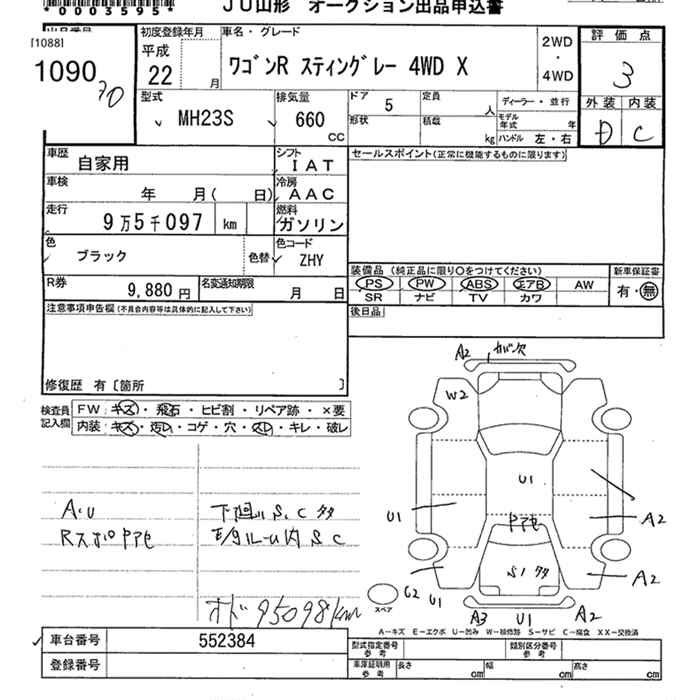 *0003595*
JU山形 オークション出品申込書
[1088]
1090
70
初度登録年月
平成
22 月
車名・グレード
ワゴンR スティングレー 4WD X
2WD
・
4WD
評価点
3
外装 内装
D C
型式
MH23S
排気量
660
CC
ドア
5
定員
人
形状
積載
kg
ディーラー・並行
モデル年式
年
ハンドル 左・右
車歴
自家用
シフト
IAT
セールスポイント(正常に機能するものに限ります)
車検
年 月( 日)
冷房
AAC
走行
9万5千097 km
燃料
ガソリン
色
ブラック
色替
色コード
ZHY
R券
9,880 円
名変通知期限
月 日
装備品 (純正品に限り○をつけてください)
PS PW ABS エアB AW
SR ナビ TV カワ
新車保証書
有・無
後日品
注意事項申告欄(不具合内容等は具体的に記入して下さい)
修復歴 有〔箇所 〕
検査員
記入欄
FW:キズ・飛石・ヒビ割・リペア跡・×要
内装:キズ・汚レ・コゲ・穴・スレ・キレ・破レ
A.U
下廻り S.C タタ
RスポPアセ
モタルーム内 S C
オド 95098km
A2
ガバ欠
W2
U1
U1
Pアセ
A2
S1 タタ
A2
G2
U1
スペア
A3
U1
A2
A-キズ E-エクボ U-凹み W-補修跡 S-サビ C-腐食 XX-交換済
車台番号
552384
登録番号
型式指定番号
参考
類別区分番号
参考
車庫証明用
参考
長さ cm
幅 cm
高さ cm